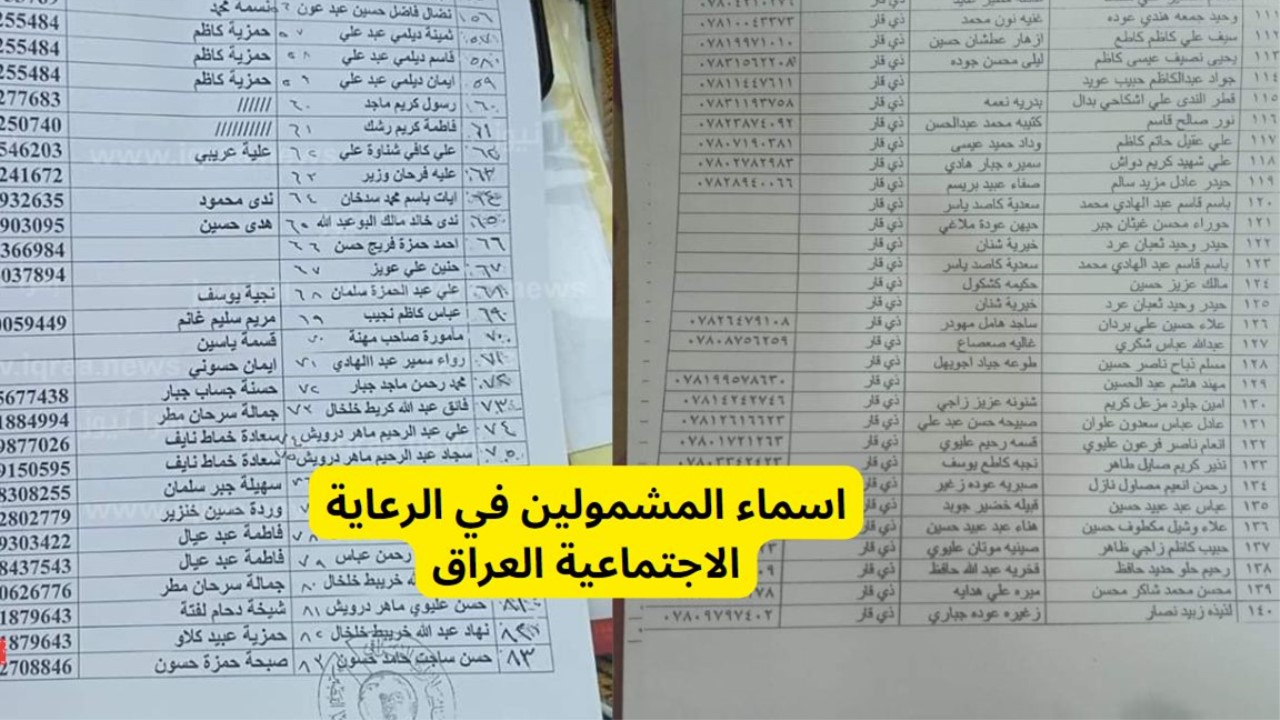 اسماء المشمولين في الرعاية
الاجتماعية العراق
١١١ وحيد جمعه هندي عوده غنيه نون محمد ذي قار ٠٧٨١٠٠٤٣٣٧٣
١١٢ سيف علي كاظم كاطع ازهار عطشان حسين ذي قار ٠٧٨١٩٩٧١٠١٠
١١٣ يحيى نصيف عيسى كاظم ليلى محسن جوده ذي قار ٠٧٨٣١٥٦٢٢٠٨
١١٤ جواد عبدالكاظم حبيب عويد ذي قار ٠٧٨١١٤٤٧٦١١
١١٥ قطر الندى علي اشكاحي بدال بدريه نعمه ذي قار ٠٧٨٣١١٩٣٧٥٨
١١٦ نور صالح قاسم كتيبه محمد عبدالحسن ذي قار ٠٧٨٢٣٨٧٤٠٩٢
١١٧ علي عقيل حاتم كاظم وداد حميد عيسى ذي قار ٠٧٨٠٧١٩٠٣٨١
١١٨ علي شهيد كريم دواش سميره جبار هادي ذي قار ٠٧٨٠٢٧٨٢٩٨٣
١١٩ حيدر عادل مزيد سالم صفاء عبيد بريسم ذي قار ٠٧٨٢٨٩٤٠٠٦٦
١٢٠ باسم قاسم عبد الهادي محمد سعدية كاصد ياسر ذي قار
١٢١ حوراء محسن غيثان جبر جيهن عودة ملاغي ذي قار
١٢٢ حيدر وحيد ثعبان عرد خيرية شنان ذي قار
١٢٣ باسم قاسم عبد الهادي محمد سعدية كاصد ياسر ذي قار
١٢٤ مالك عزيز حسين حكيمه كشكول ذي قار
١٢٥ حيدر وحيد ثعبان عرد خيرية شنان ذي قار
١٢٦ علاء حسين علي بردان ساجد هامل مهودر ذي قار ٠٧٨٢٦٤٧٩١٠٨
١٢٧ عبدالله عباس شكري غاليه صعصاع ذي قار ٠٧٨٠٨٧٥٦٢٥٩
١٢٨ مسلم ذباح ناصر حسين طوعه جياد اجويهل ذي قار
١٢٩ مهند هاشم عبد الحسين ذي قار ٠٧٨١٩٩٥٧٨٦٣٠
١٣٠ امين جلود مزعل كريم شنونه عزيز زاجي ذي قار ٠٧٨١٤٢٤٢٧٤٦
١٣١ عادل عباس سعدون علوان صبيحه حسن عبد علي ذي قار ٠٧٨١٢٦١٦٦٢٣
١٣٢ انعام ناصر فرعون عليوي قسمه رحيم عليوي ذي قار ٠٧٨٠١٧٢١٢٦٣
١٣٣ نذير كريم صايل طاهر نجبه كاطع يوسف ذي قار ٠٧٨٠٣٣٤٢٤٢٣
١٣٤ رحمن انعيم مصاول نازل صبريه عوده زغير ذي قار
١٣٥ عباس عبد عبيد حسين قبيله خضير جويد ذي قار
١٣٦ علاء وشيل مكطوف حسين هناء عبد عبيد حسين ذي قار
١٣٧ حبيب كاظم زاجي ظاهر صينيه موتان عليوي ذي قار
١٣٨ رحيم حلو حديد حافظ فخريه عبد الله حافظ ذي قار
١٣٩ محسن محمد شاكر محسن ميره علي هدايه ذي قار
١٤٠ لذيذه زبيد نصار زغيره عوده جباري ذي قار ٠٧٨٠٩٧٩٧٤٠٢
٥٦ نضال فاضل حسين عبد عون نسمه محمد
٥٧ ثمينة ديلمي عبد علي ٥٧ حمزية كاظم 255484
٥٨ قاسم ديلمي عبد علي ٥٨ حمزية كاظم 255484
٥٩ ايمان ديلمي عبد علي ٥٩ حمزية كاظم 255484
٦٠ رسول كريم ماجد ٦٠ ////// 277683
٦١ فاطمة كريم رشك ٦١ ////////// 250740
٦٢ علي كافي شناوة علي ٦٢ علية عريبي 546203
٦٣ عليه فرحان وزير ٦٣ 241672
٦٤ ايات باسم محمد سدخان ٦٤ ندى محمود 932635
٦٥ ندى خالد مالك البوعبد الله ٦٥ هدى حسين 903095
٦٦ احمد حمزة فريج حسن ٦٦ 366984
٦٧ حنين علي عويز ٦٧ 037894
٦٨ علي عبد الحمزة سلمان ٦٨ نجية يوسف
٦٩ عباس كاظم نجيب ٦٩ مريم سليم غانم 0059449
٧٠ مأمورة صاحب مهنة ٧٠ قسمة ياسين
٧١ رواء سمير عبد االهادي ٧١ ايمان حسوني
٧٢ محمد رحمن ماجد جبار ٧٢ حسنة جساب جبار 5677438
٧٣ فائق عبد الله كريط خلخال ٧٣ جمالة سرحان مطر 1884994
٧٤ علي عبد الرحيم ماهر درويش سعادة خماط نايف 9877026
٧٥ سجاد عبد الرحيم ماهر درويش سعادة خماط نايف 9150595
سهيلة جبر سلمان 8308255
وردة حسين خنزير 2802779
٧٨ فاطمة عبد عيال 9303422
رحمن عباس ٧٩ فاطمة عبد عيال 8437543
خريبط خلخال ٨٠ جمالة سرحان مطر 0626776
حسن عليوي ماهر درويش ٨١ شيخة دحام لفتة 1879643
٨٢ نهاد عبد الله خريبط خلخال ٨٢ حمزية عبيد كلاو 1879643
٨٣ حسن ساجت حامد حسون ٨٣ صبحة حمزة حسون 2708846